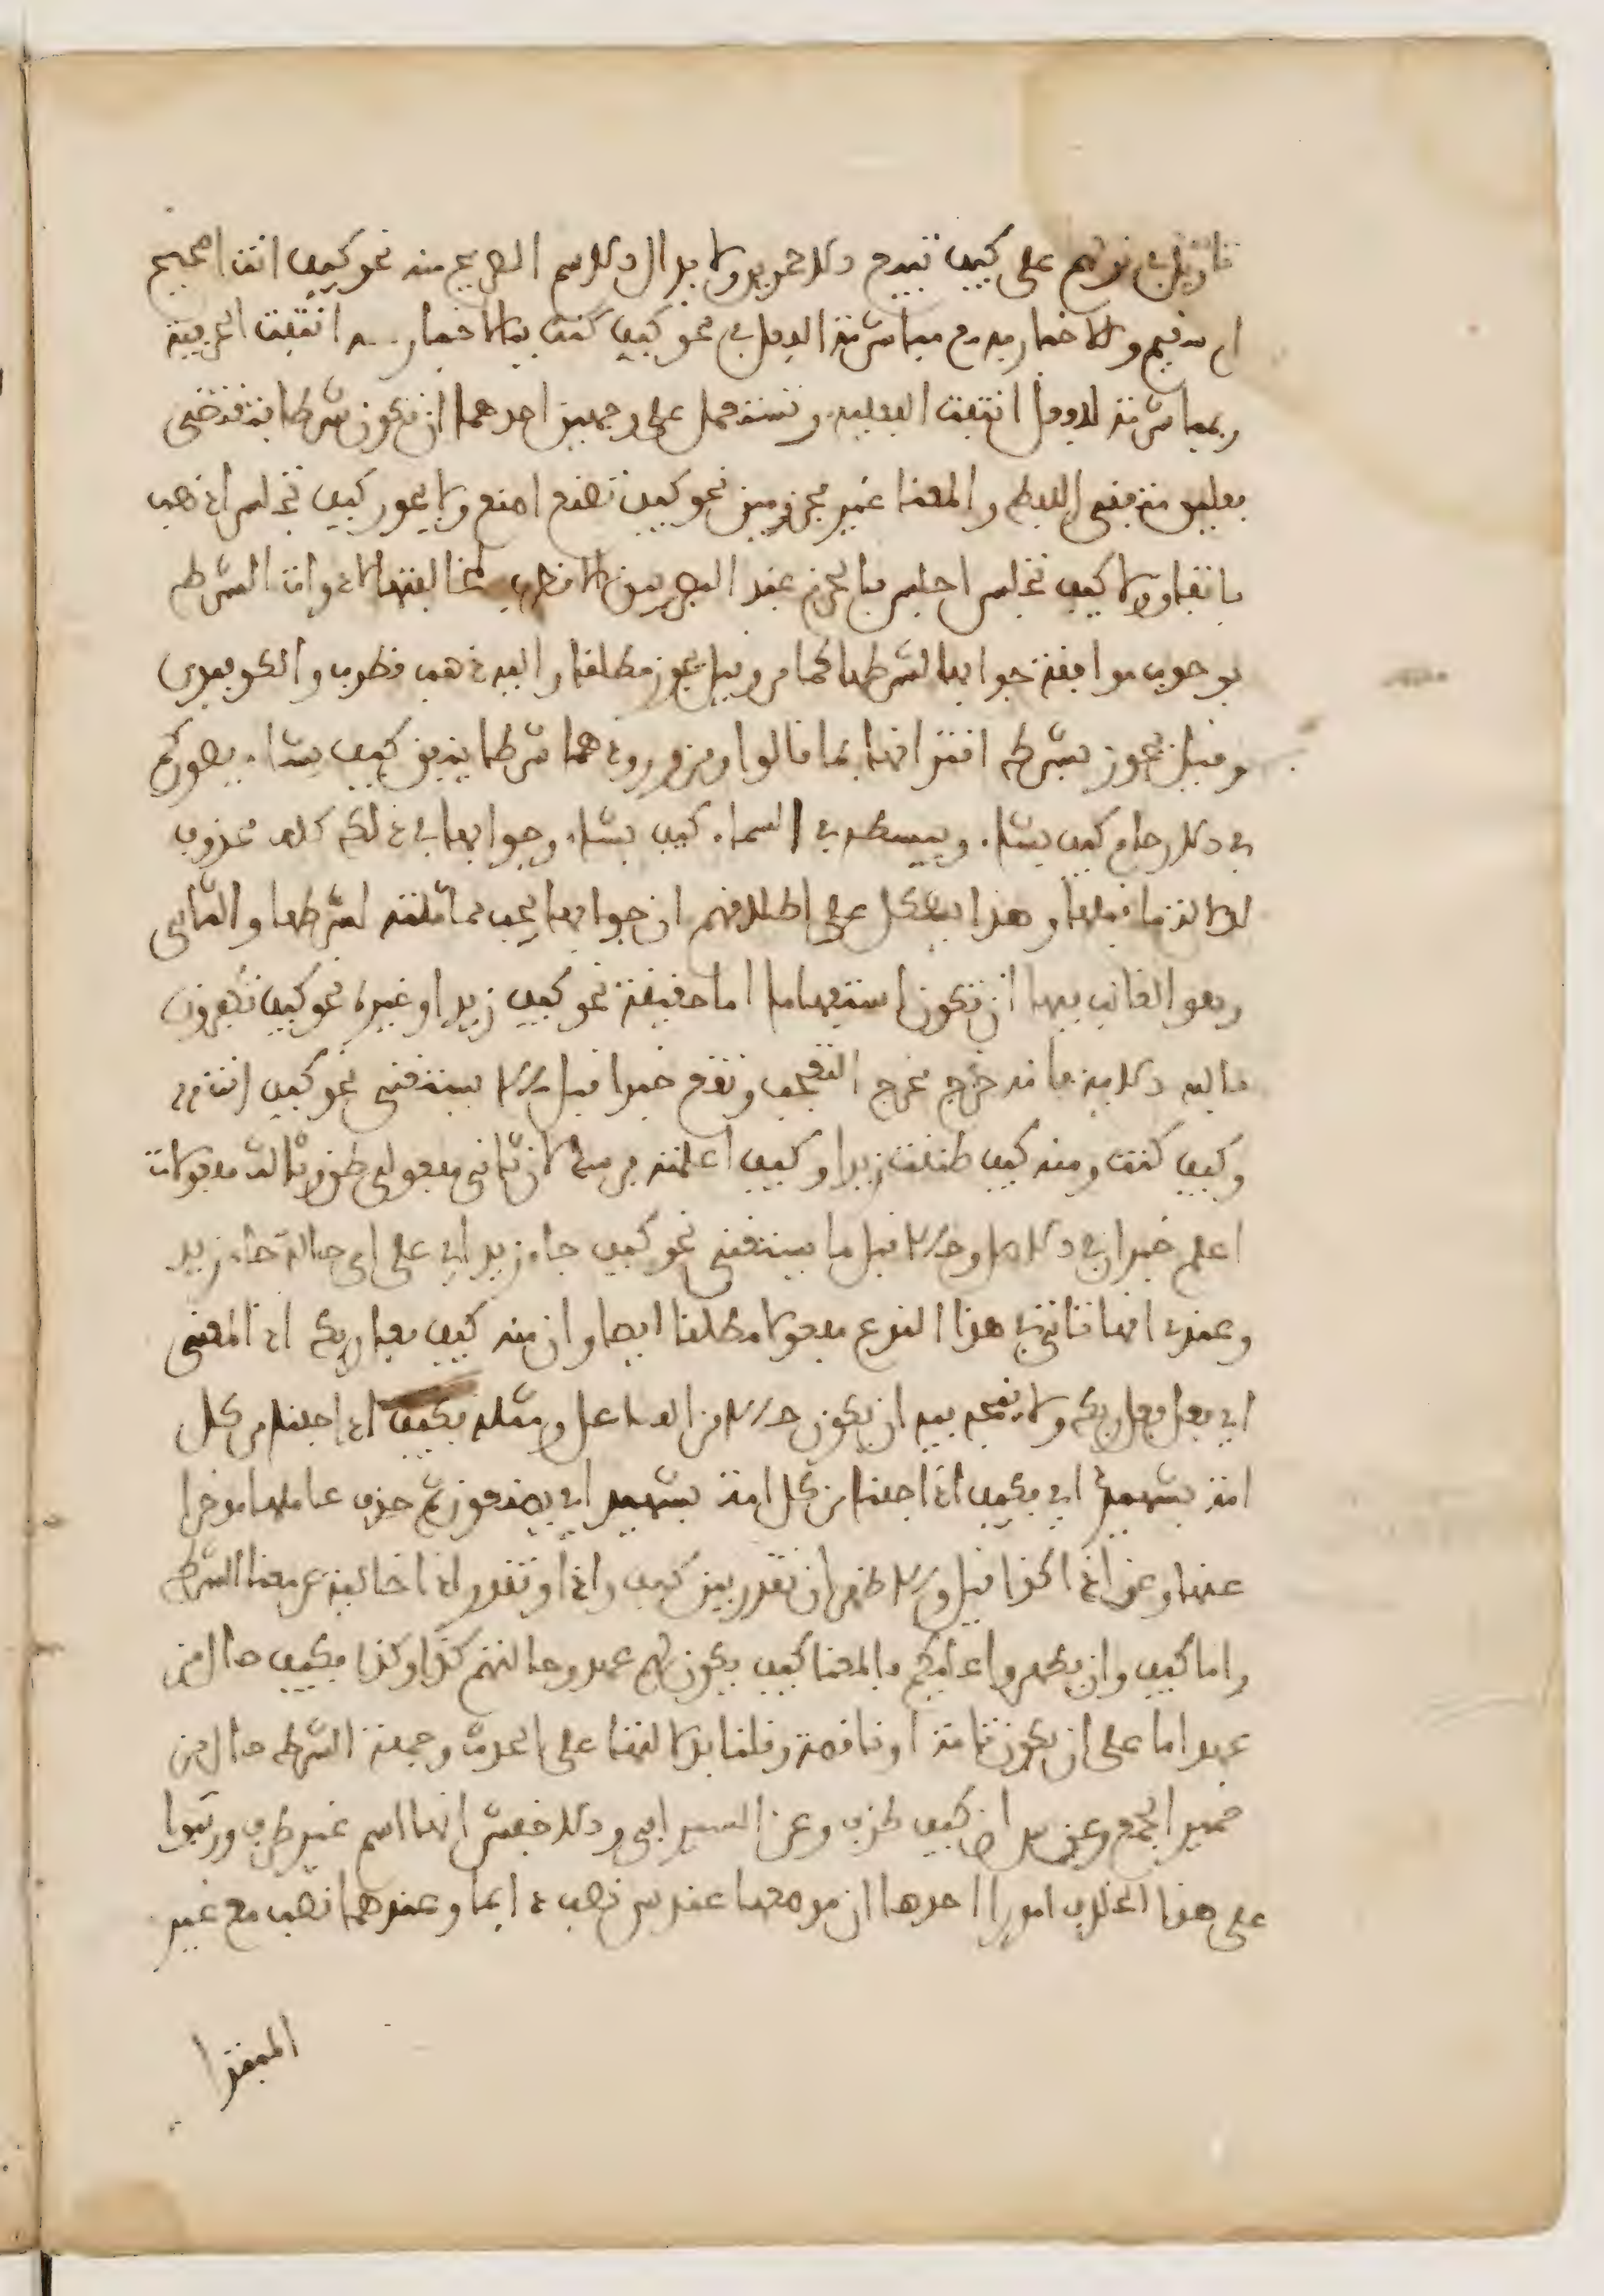 تاويل في قولهم على كيف تبيع الاحمرين ولابدال الاسم الصريح منه نحو كيف انت اصحيح
ام سقيم وللاخبار به مع مباشرته الفعل في نحو كيف كنت فبالاخبار به انتفت الحرفية
وبمباشرته للفعل انتفت الفعلية وتستعمل على وجهين احدهما ان تكون شرطا فتقتضي
فعلين متفقي اللفظ والمعنا غير مجزومين نحو كيف تصنع اصنع ولا يجوز كيف تجلس اذهب
باتفاق ولا كيف تجلس اجلس بالجزم عند البصريين الا قطرب لمخالفتها لادوات الشرط
بوجوب موافقة جوابها لشرطها كما مر وقيل يجوز مطلقا واليه ذهب قطرب والكوفيون
وقيل يجوز بشرط اقترانها بما قالوا ومن ورودها شرطا ينفق كيف يشاء يصوركم
في الارحام كيف يشاء ويبسطه في السماء كيف يشاء وجوابها في ذلك كله محذوف
لدلالة ما قبلها وهذا يشكل على اطلاقهم ان جوابها يجب مماثلته لشرطها والثاني
وهو الغالب فيها ان تكون استفهاما اما حقيقة نحو كيف زيد او غيره نحو كيف تكفرون
بالله الاية فانه خرج مخرج التعجب وتقع خبرا قبل ما لا يستغني نحو كيف انت
وكيف كنت ومنه كيف ظننت زيدا وكيف اعلمته فرسك لان ثاني مفعولي ظن وثالث مفعولات
اعلم خبران في الاصل وحالا قبل ما يستغني نحو كيف جاء زيد اي على اي حالة جاء زيد
وعندي انها تاتي في هذا النوع مفعولا مطلقا ايضا وان منه كيف فعل ربك اذ المعنى
اي فعل فعل ربك ولا يتجه فيه ان يكون حالا من الفاعل ومثله فكيف اذا جئنا من كل
امة بشهيد اي فكيف اذا جئنا من كل امة بشهيد اي يصنعون ثم حذف عاملها مؤخرا
عنها وعن اذا كذا قيل والاظهر ان تقدر بين كيف واذا وتقدر اذا خالية عن معنا الشرط
واما كيف وان يظهروا عليكم فالمعنا كيف يكون لهم عهد وحالتهم كذا وكذا فكيف حال من
عهد اما على ان يكون تامة او ناقصة وقلنا بدلالتها على الحدث وجملة الشرط حال من
ضمير الجمع وعن س ان كيف ظرف وعن السيرافي والاخفش انها اسم غير ظرف ورتبوا
على هذا الخلاف امورا احدها ان موضعها عند س نصب دايما وعندهما نصب مع غير
المبتدا